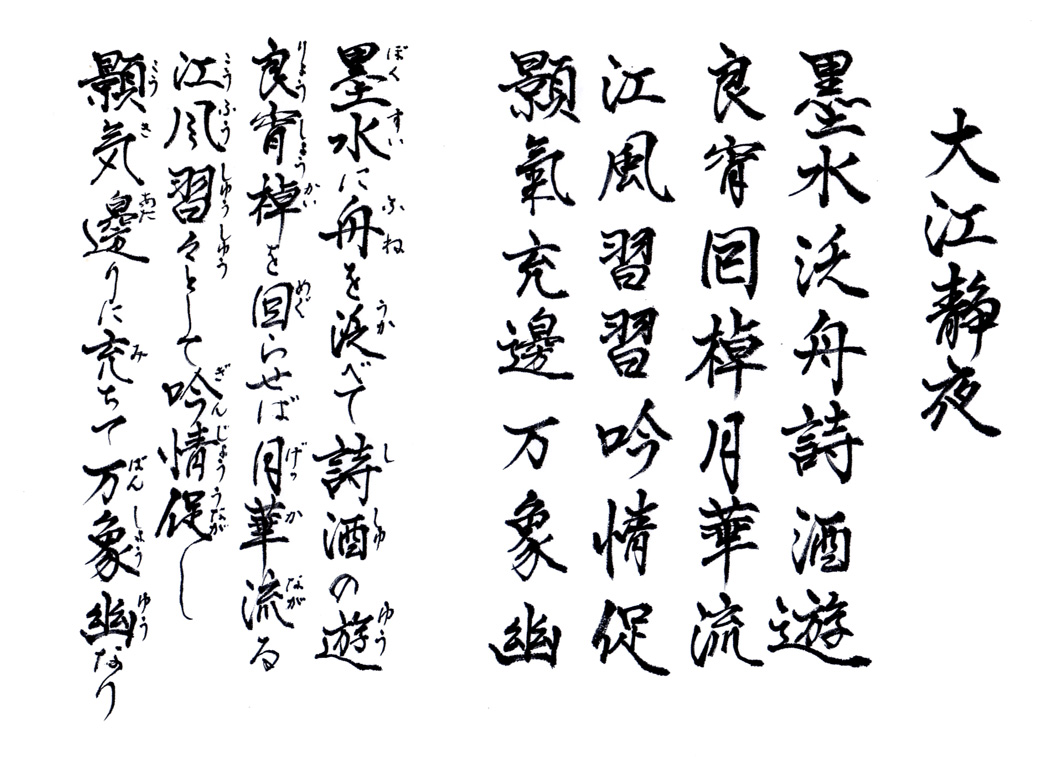 大江静夜
墨水泛舟詩酒遊
良宵回棹月華流
江風習習吟情促
顥氣充邊万象幽
墨水に舟を泛べて詩酒の遊
ぼくすい ふね うか ししゅ ゆう
良宵棹を回らせば月華流る
りょうしょうかい めぐ げっか なが
江風習々として吟情促し
こうふうしゅうしゅう ぎんじょううなが
顥気邊りに充ちて万象幽なり
こうき あた み ばんしょうゆう